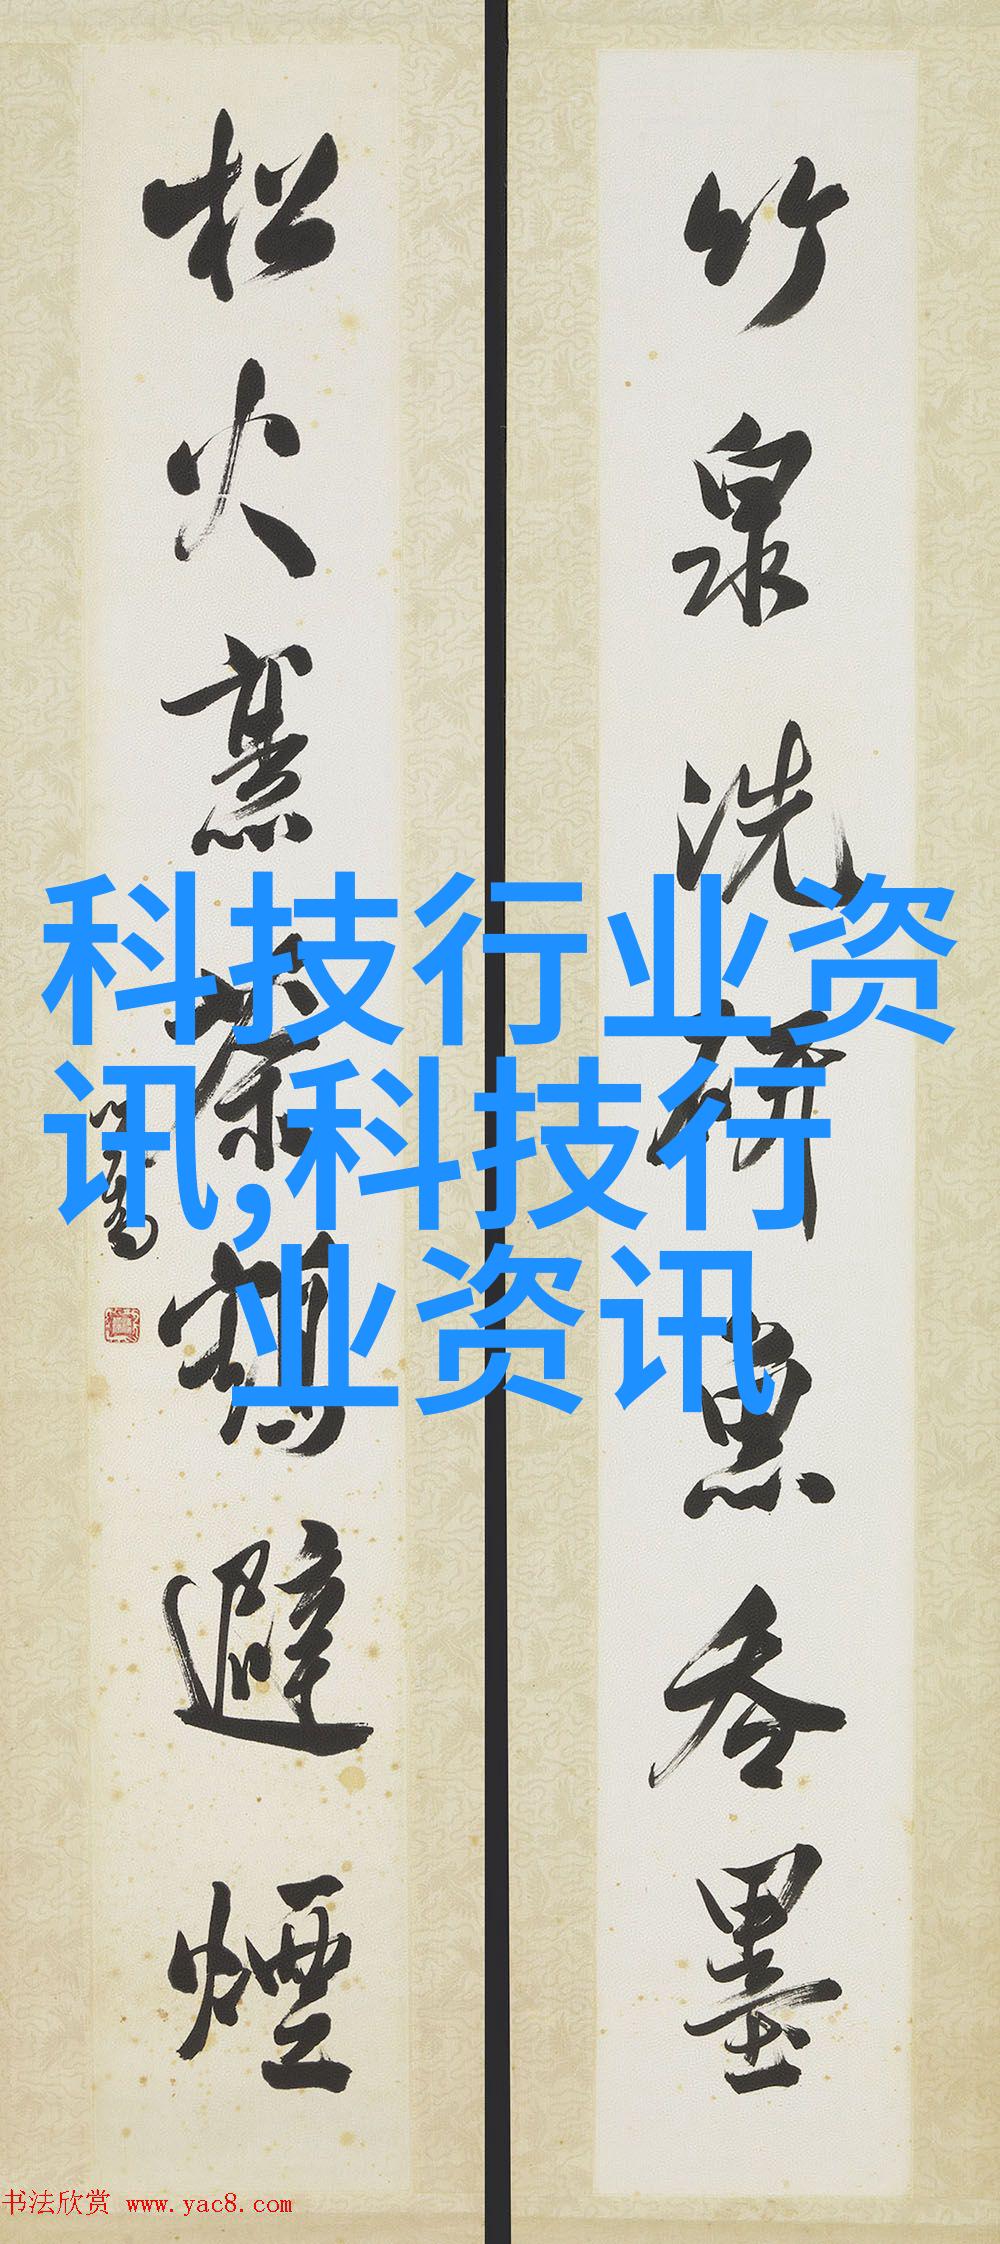 竹泉洗研魚吞墨
松火茶鶴避煙
科技行业资
讯,科技行
业资讯
书法欣赏 www.yac8.com